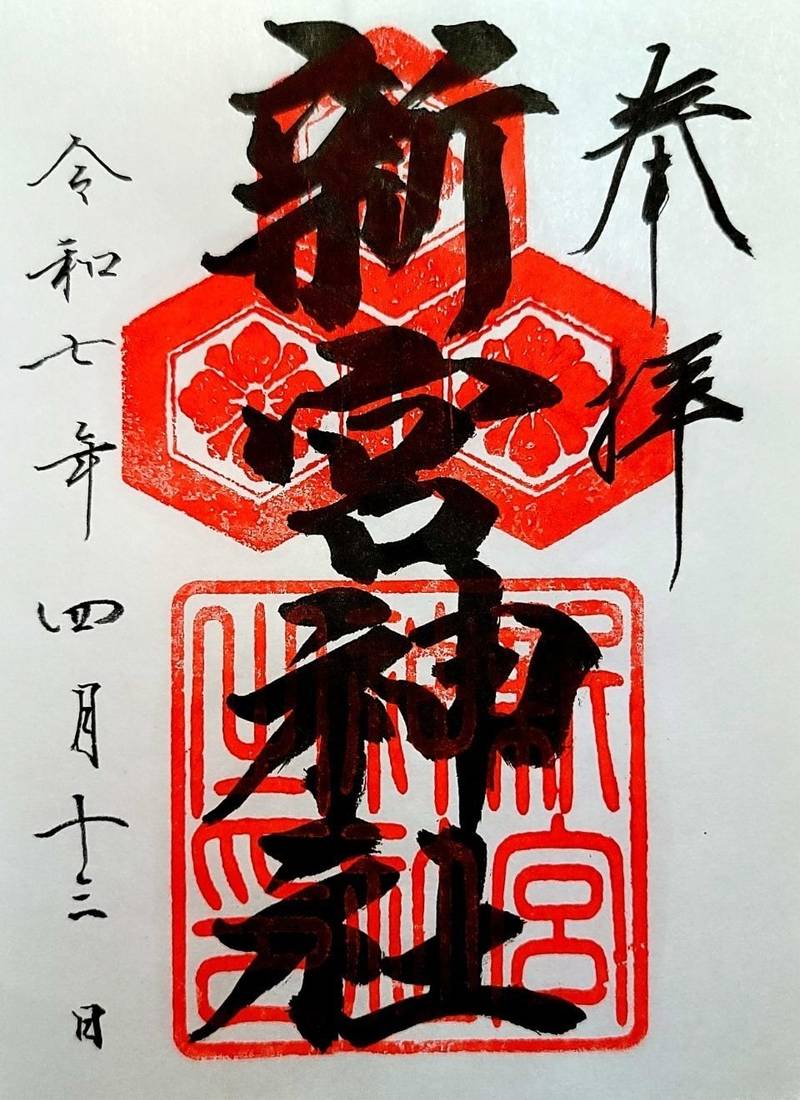 奉拝
新宮神社
新宮
神社
之印
令和七年四月十三日